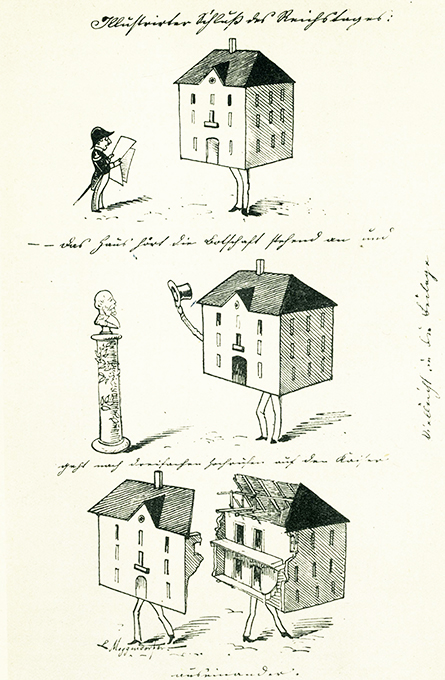 Illustrirter Schluß des Reichstages:
-- das Haus hört die Botschaft stehend an und
geht nach dreifachem Hochrufen auf den Kaiser
L. Meggendorfer
auseinander.